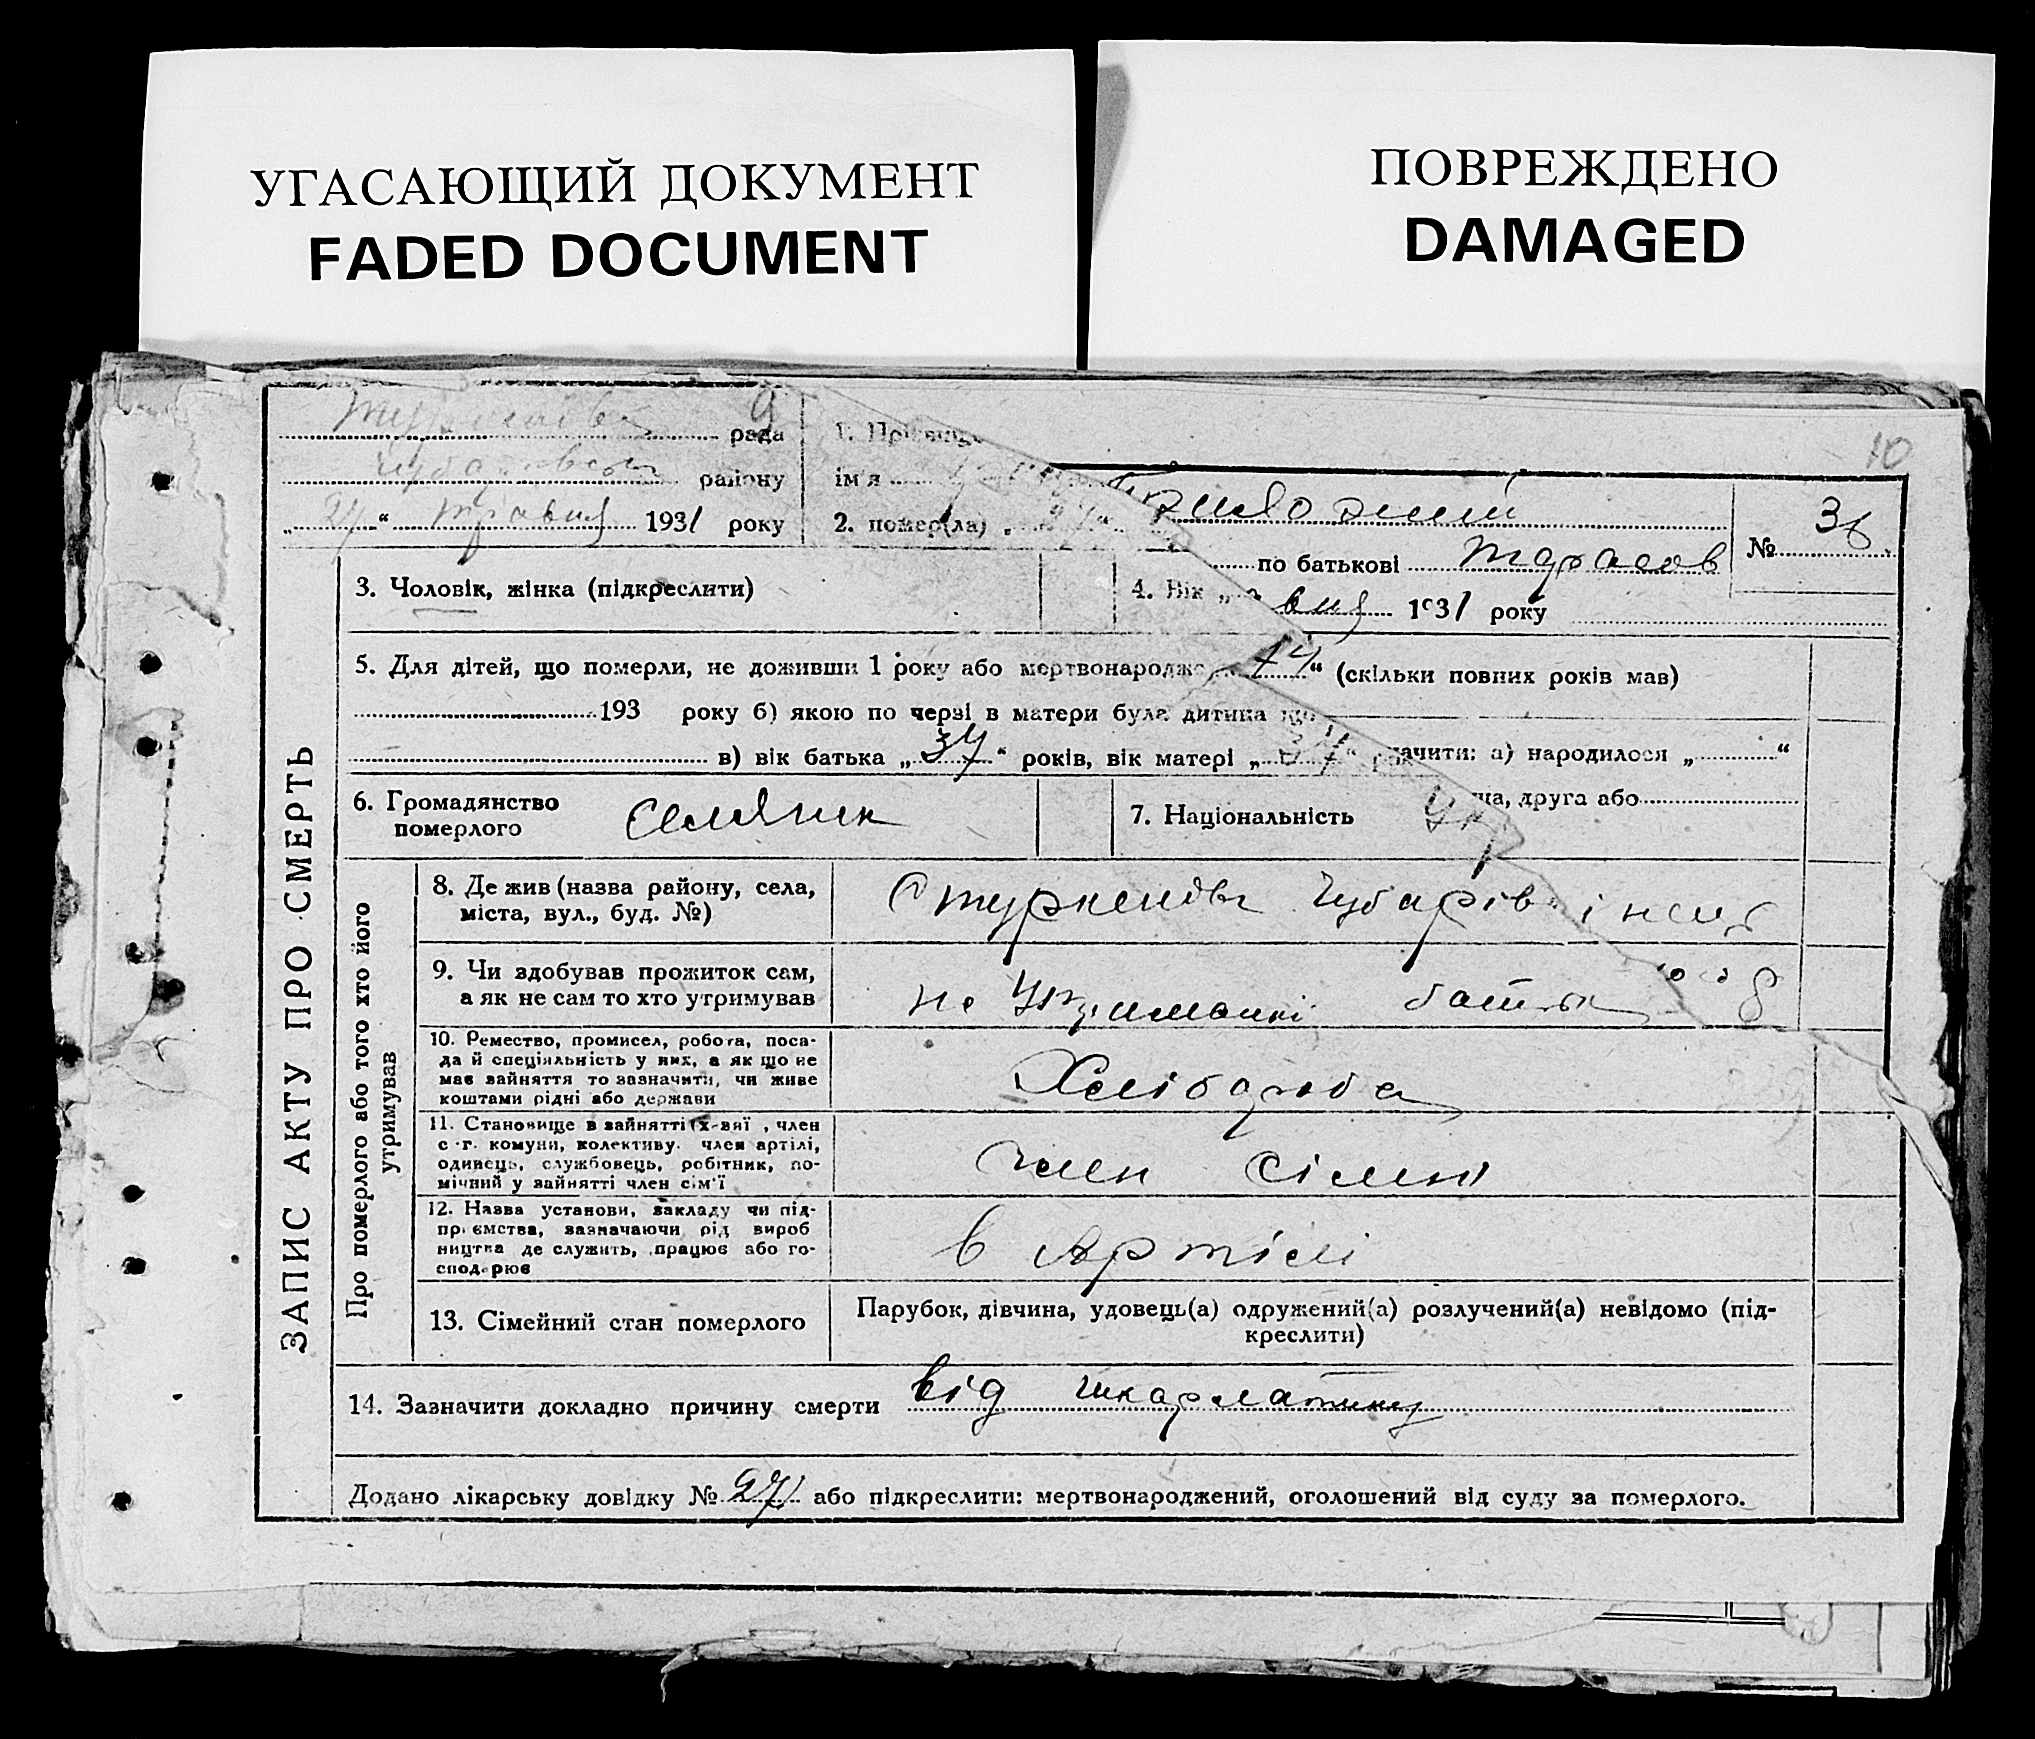 УГАСАЮЩИЙ ДОКУМЕНТ
FADED DOCUMENT
ПОВРЕЖДЕНО
DAMAGED
10
рада
району
"27" травня 1931 року
1. Прізвищ
ім'я
по батькові Тарасов
№ 36
2. помер(ла) вня 1931 року
3. Чоловік, жінка (підкреслити)
4. Вік „ " (скільки повних років мав)
5. Для дітей, що померли, не доживши 1 року або мертвонародже значити: а) народилося „ "
193 року б) якою по черзі в матері була дитина що ша, друга або
в) вік батька „37" років, вік матері „37"
6. Громадянство
померлого
селянин
7. Національність Укр
ЗАПИС АКТУ ПРО СМЕРТЬ
Про померлого або того хто його
утримував
8. Де жив (назва району, села,
міста, вул., буд. №)
9. Чи здобував прожиток сам,
а як не сам то хто утримував
на утриманні батьк
10. Ремество, промисел, робота, поса-
да й спеціяльність у них, а як що не
має зайняття то зазначити, чи живе
коштами рідні або держави
Хлібороба
11. Становище в зайнятті х-вяї , член
с.-г. комуни, колективу. член артілі,
одинець, службовець, робітник, по-
мічний у зайнятті член сім'ї
член сімї
12. Назва установи, закладу чи під-
приємства, зазначаючи рід вироб
ництва де служить, працює або го-
сподарює
в Артілі
13. Сімейний стан померлого
Парубок, дівчина, удовець(а) одружений(а) розлучений(а) невідомо (під-
креслити)
14. Зазначити докладно причину смерти від шкарлатину
Додано лікарську довідку № 27 або підкреслити: мертвонароджений, оголошений від суду за померлого.